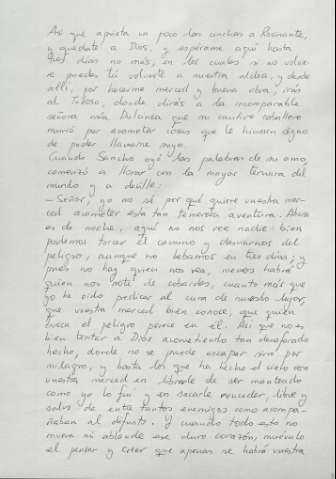 Así que aprieta un poco las cinchas a Rocinante,
y quédate a Dios, y espérame aquí hasta
tres días no más, en los cuales si no volvie
re puedes tú volverte a nuestra aldea, y desde
allí, por hacerme merced y buena obra, irás
al Toboso, donde dirás a la incomparable
señora mía Dulcinea que su cautivo caballero
murió por acometer cosas que le hiciesen digno
de poder llamarse suyo.
Cuando Sancho oyó las palabras de su amo,
comenzó a llorar con la mayor ternura del
mundo y a decille:
— Señor, yo no sé por qué quiere vuestra mer-
ced acometer esta tan temerosa aventura. Ahora
es de noche, aquí no nos vee nadie: bien
podemos torcer el camino y desviarnos del
peligro, aunque no bebamos en tres días; y
pues no hay quien nos vea, menos habrá
quien nos note de cobardes, cuanto más que
yo he oído predicar al cura de nuestro lugar,
que vuestra merced bien conoce, que quien
busca el peligro perece en él. Así que no es
bien tentar a Dios acometiendo tan desaforado
hecho, donde no se puede escapar sino por
milagro, y basta los que ha hecho el cielo con
vuestra merced en librarle de ser manteado
como yo lo fui y en sacarle vencedor, libre y
salvo de entre tantos enemigos como acompa-
ñaban al difunto. Y cuando todo esto no
mueva ni ablande ese duro corazón, muévale
el pensar y creer que apenas se habrá vuestra